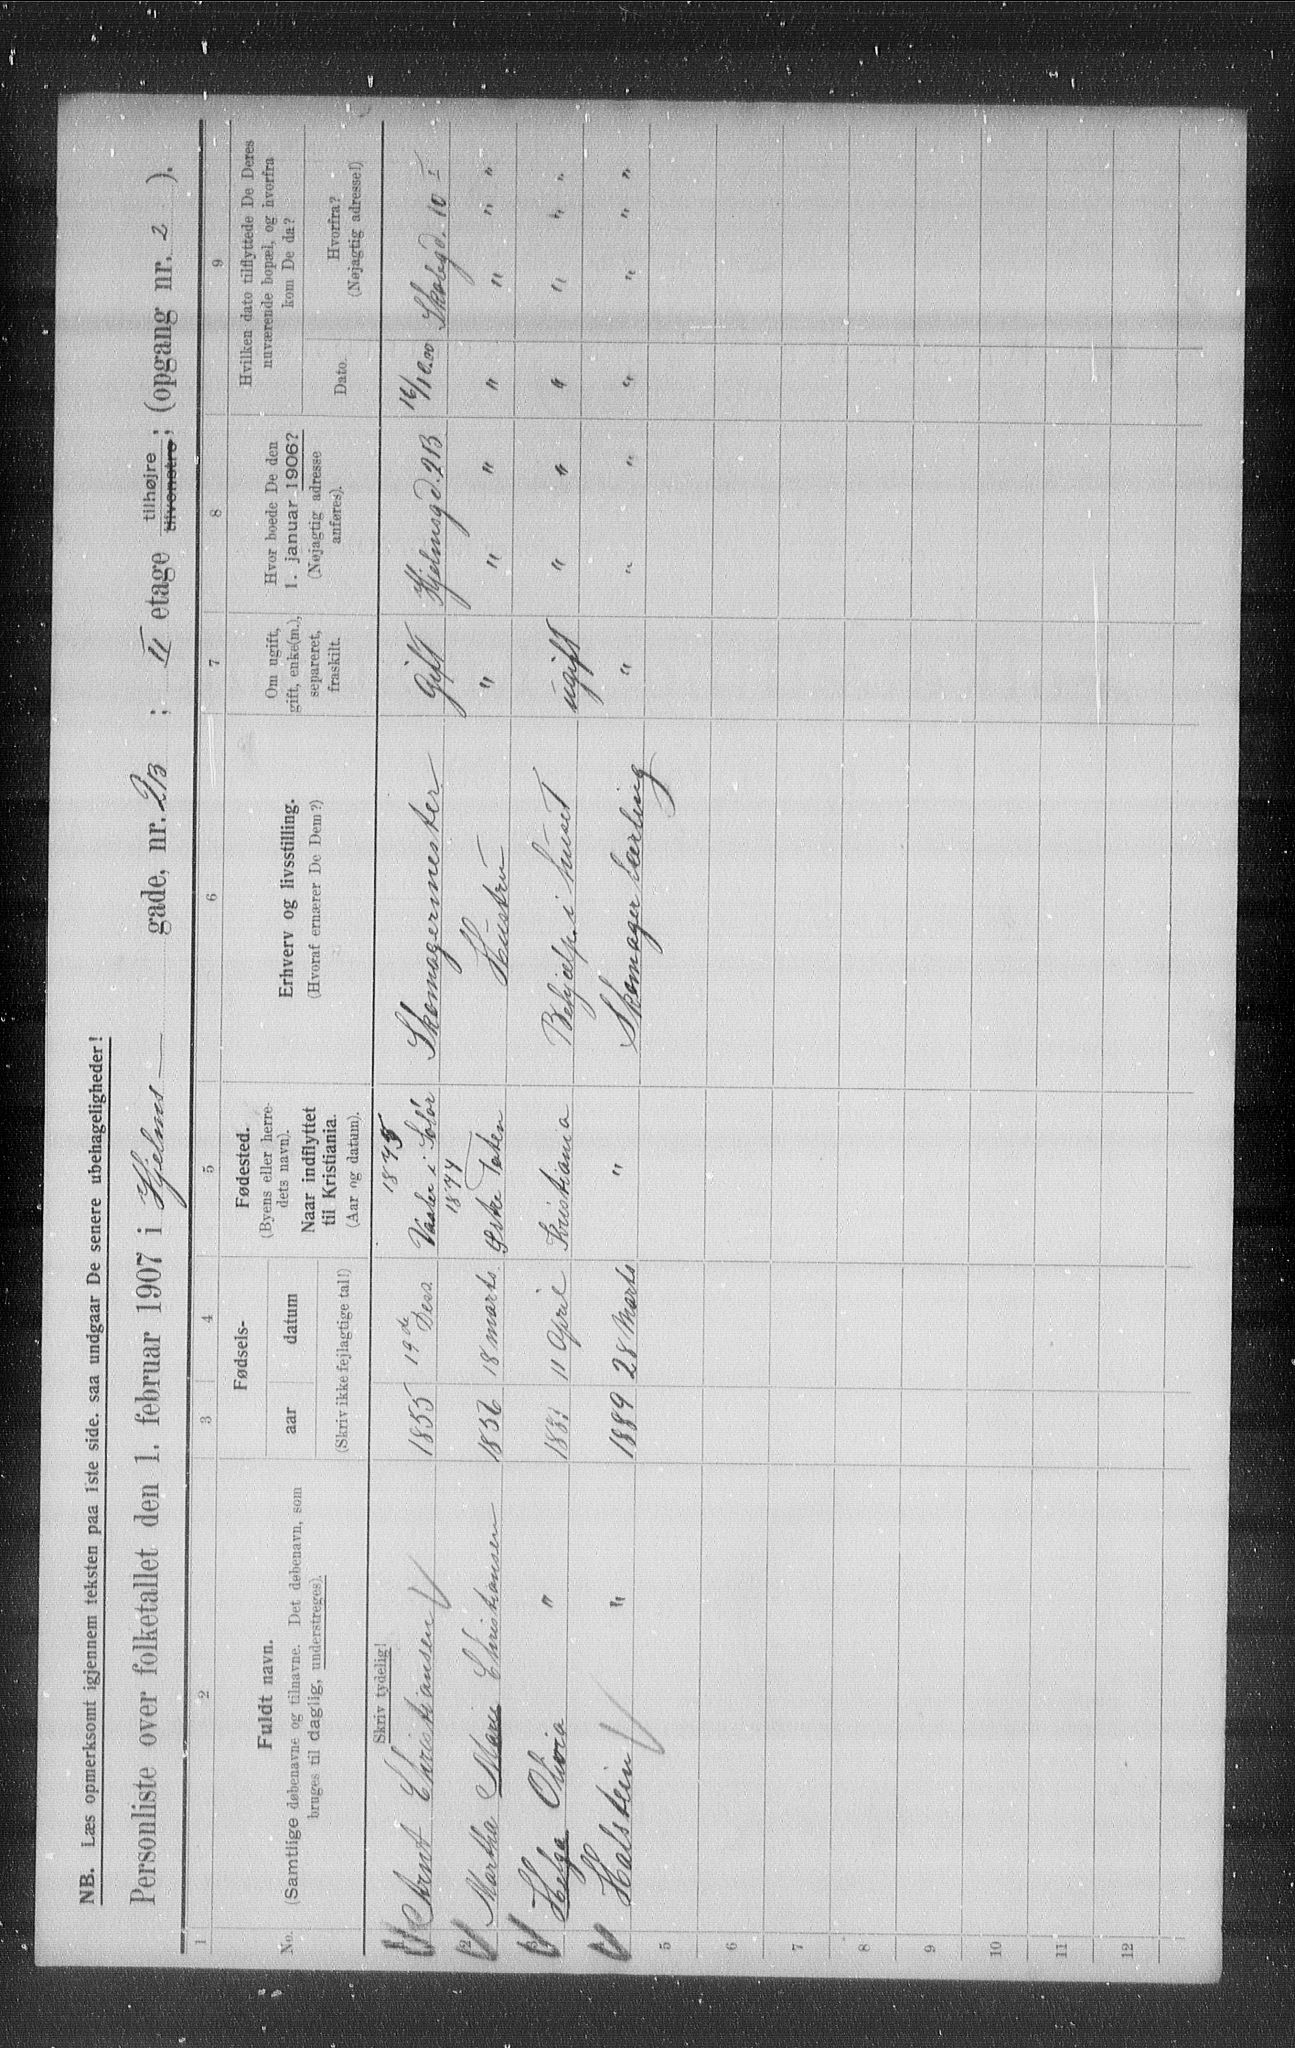 NB. Læs opmerksomt igjennem teksten paa 1ste side. saa undgaar De senere ubehageligheder!
Personliste over folketallet den 1. februar 1907 i Hjelms gade, nr. 2B ; II etage tilhøjre tilvenstre; (opgang nr. 2 ).
1 2 3 4 5 6 7 8 9
No.
Fuldt navn.
(Samtlige døbenavne og tilnavne. Det døbenavn, som
bruges til daglig, understreges).
Fødsels-
aar datum
(Skriv ikke fejlagtige tal!)
Fødested.
(Byens eller herre-
dets navn).
Naar indflyttet
til Kristiania.
(Aar og datum).
Erhverv og livsstilling.
(Hvoraf ernærer De Dem?)
Om ugift,
gift, enke(m.),
separeret,
fraskilt.
Hvor boede De den
1. januar 1906?
(Nøjagtig adresse
anføres).
Hvilken dato tilflyttede De Deres
nuværende bopæl, og hvorfra
kom De da?
Dato.
Hvorfra?
(Nøjagtig adresse!)
Skriv tydelig!
1875
1 Arnt Christiansen 1855 19de Des. Vaaler i Solør Skomagermester Gift Hjelmsgd. 2B 16/10.00 10
1877
2 Martha Marie Christiansen 1856 18 marts. Østre Toten Hustru " " " " " " "
3 Helga Olivia " 11 April Kristiania Behjælp. i huset ugift " " " " " "
Halstein " 1889 28 Marts " Skomager Lærling " " " " " " "
5
6
7
8
9
10
11
12